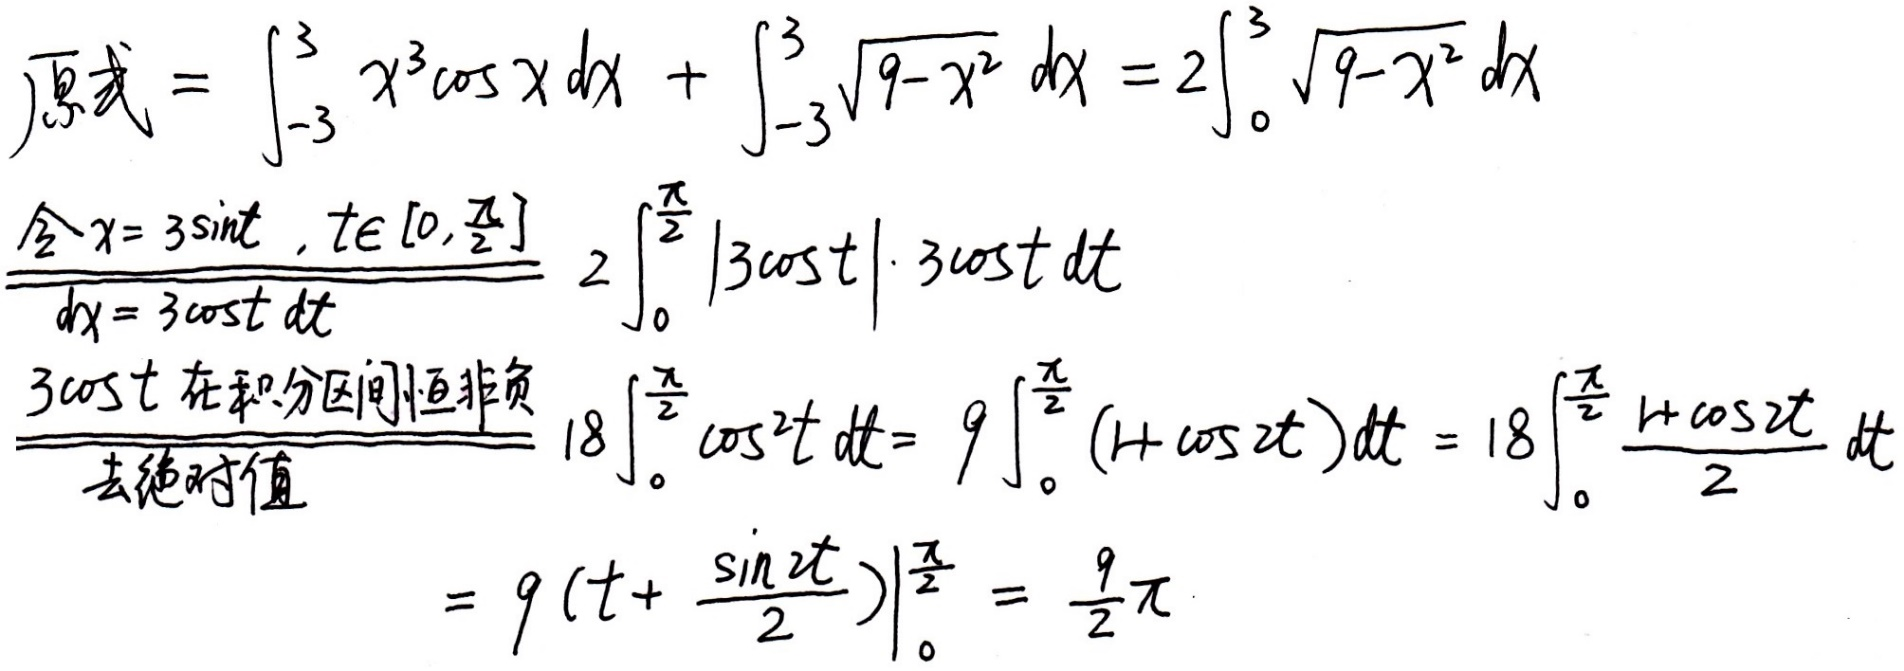 原式 = ∫_{-3}^{3} x³cos x dx + ∫_{-3}^{3} √(9-x²) dx = 2∫_{0}^{3} √(9-x²) dx
令 x = 3sint , t∈[0, π/2]
dx = 3cost dt
2∫_{0}^{π/2} |3cost| · 3cost dt
3cost 在积分区间恒非负
去绝对值
18∫_{0}^{π/2} cos²t dt = 9∫_{0}^{π/2} (1+cos2t)dt = 18∫_{0}^{π/2} (1+cos2t)/2 dt
= 9(t + sin2t/2)|_{0}^{π/2} = 9/2 π